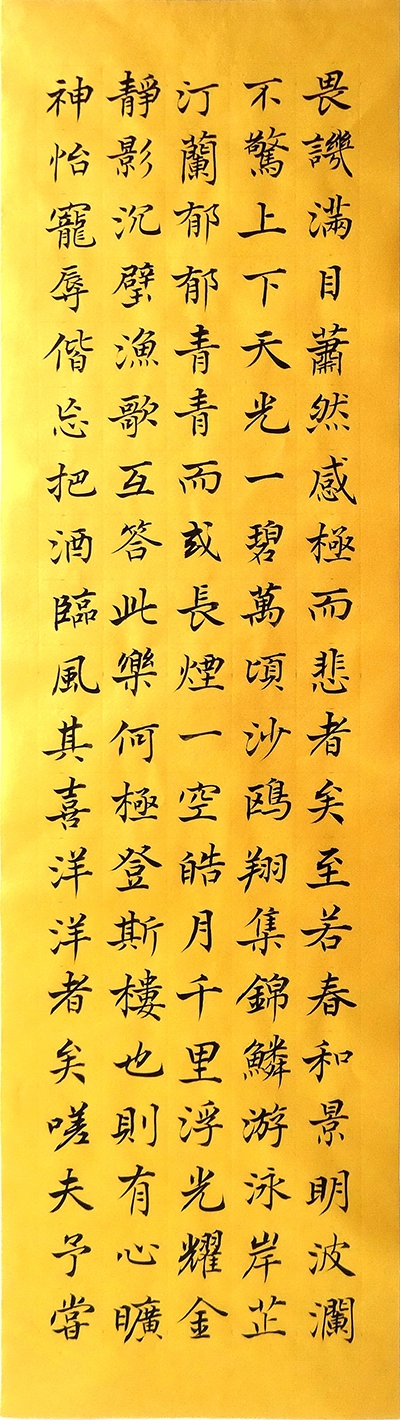 畏譏滿目蕭然感極而悲者矣至若春和景明波瀾
不驚上下天光一碧萬頃沙鷗翔集錦鱗游泳岸芷
汀蘭郁郁青青而或長煙一空皓月千里浮光耀金
靜影沉璧漁歌互答此樂何極登斯樓也則有心曠
神怡寵辱偕忘把酒臨風其喜洋洋者矣嗟夫予嘗